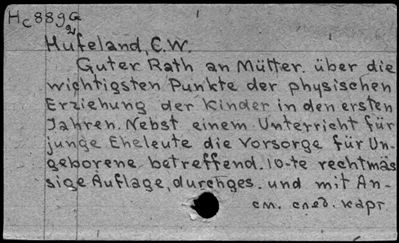 Hc889a
2
Hufeland, C.W.
Guter Rath an Mütter über die
wichtigsten Punkte der physischen
Erziehung der Kinder in den ersten
Jahren. Nebst einem Unterricht für
junge Eheleute die Vorsorge für Un-
geborene betreffend. 10-te rechtmäs
sige Auflage, durchges. und mit An-
см. след. карт